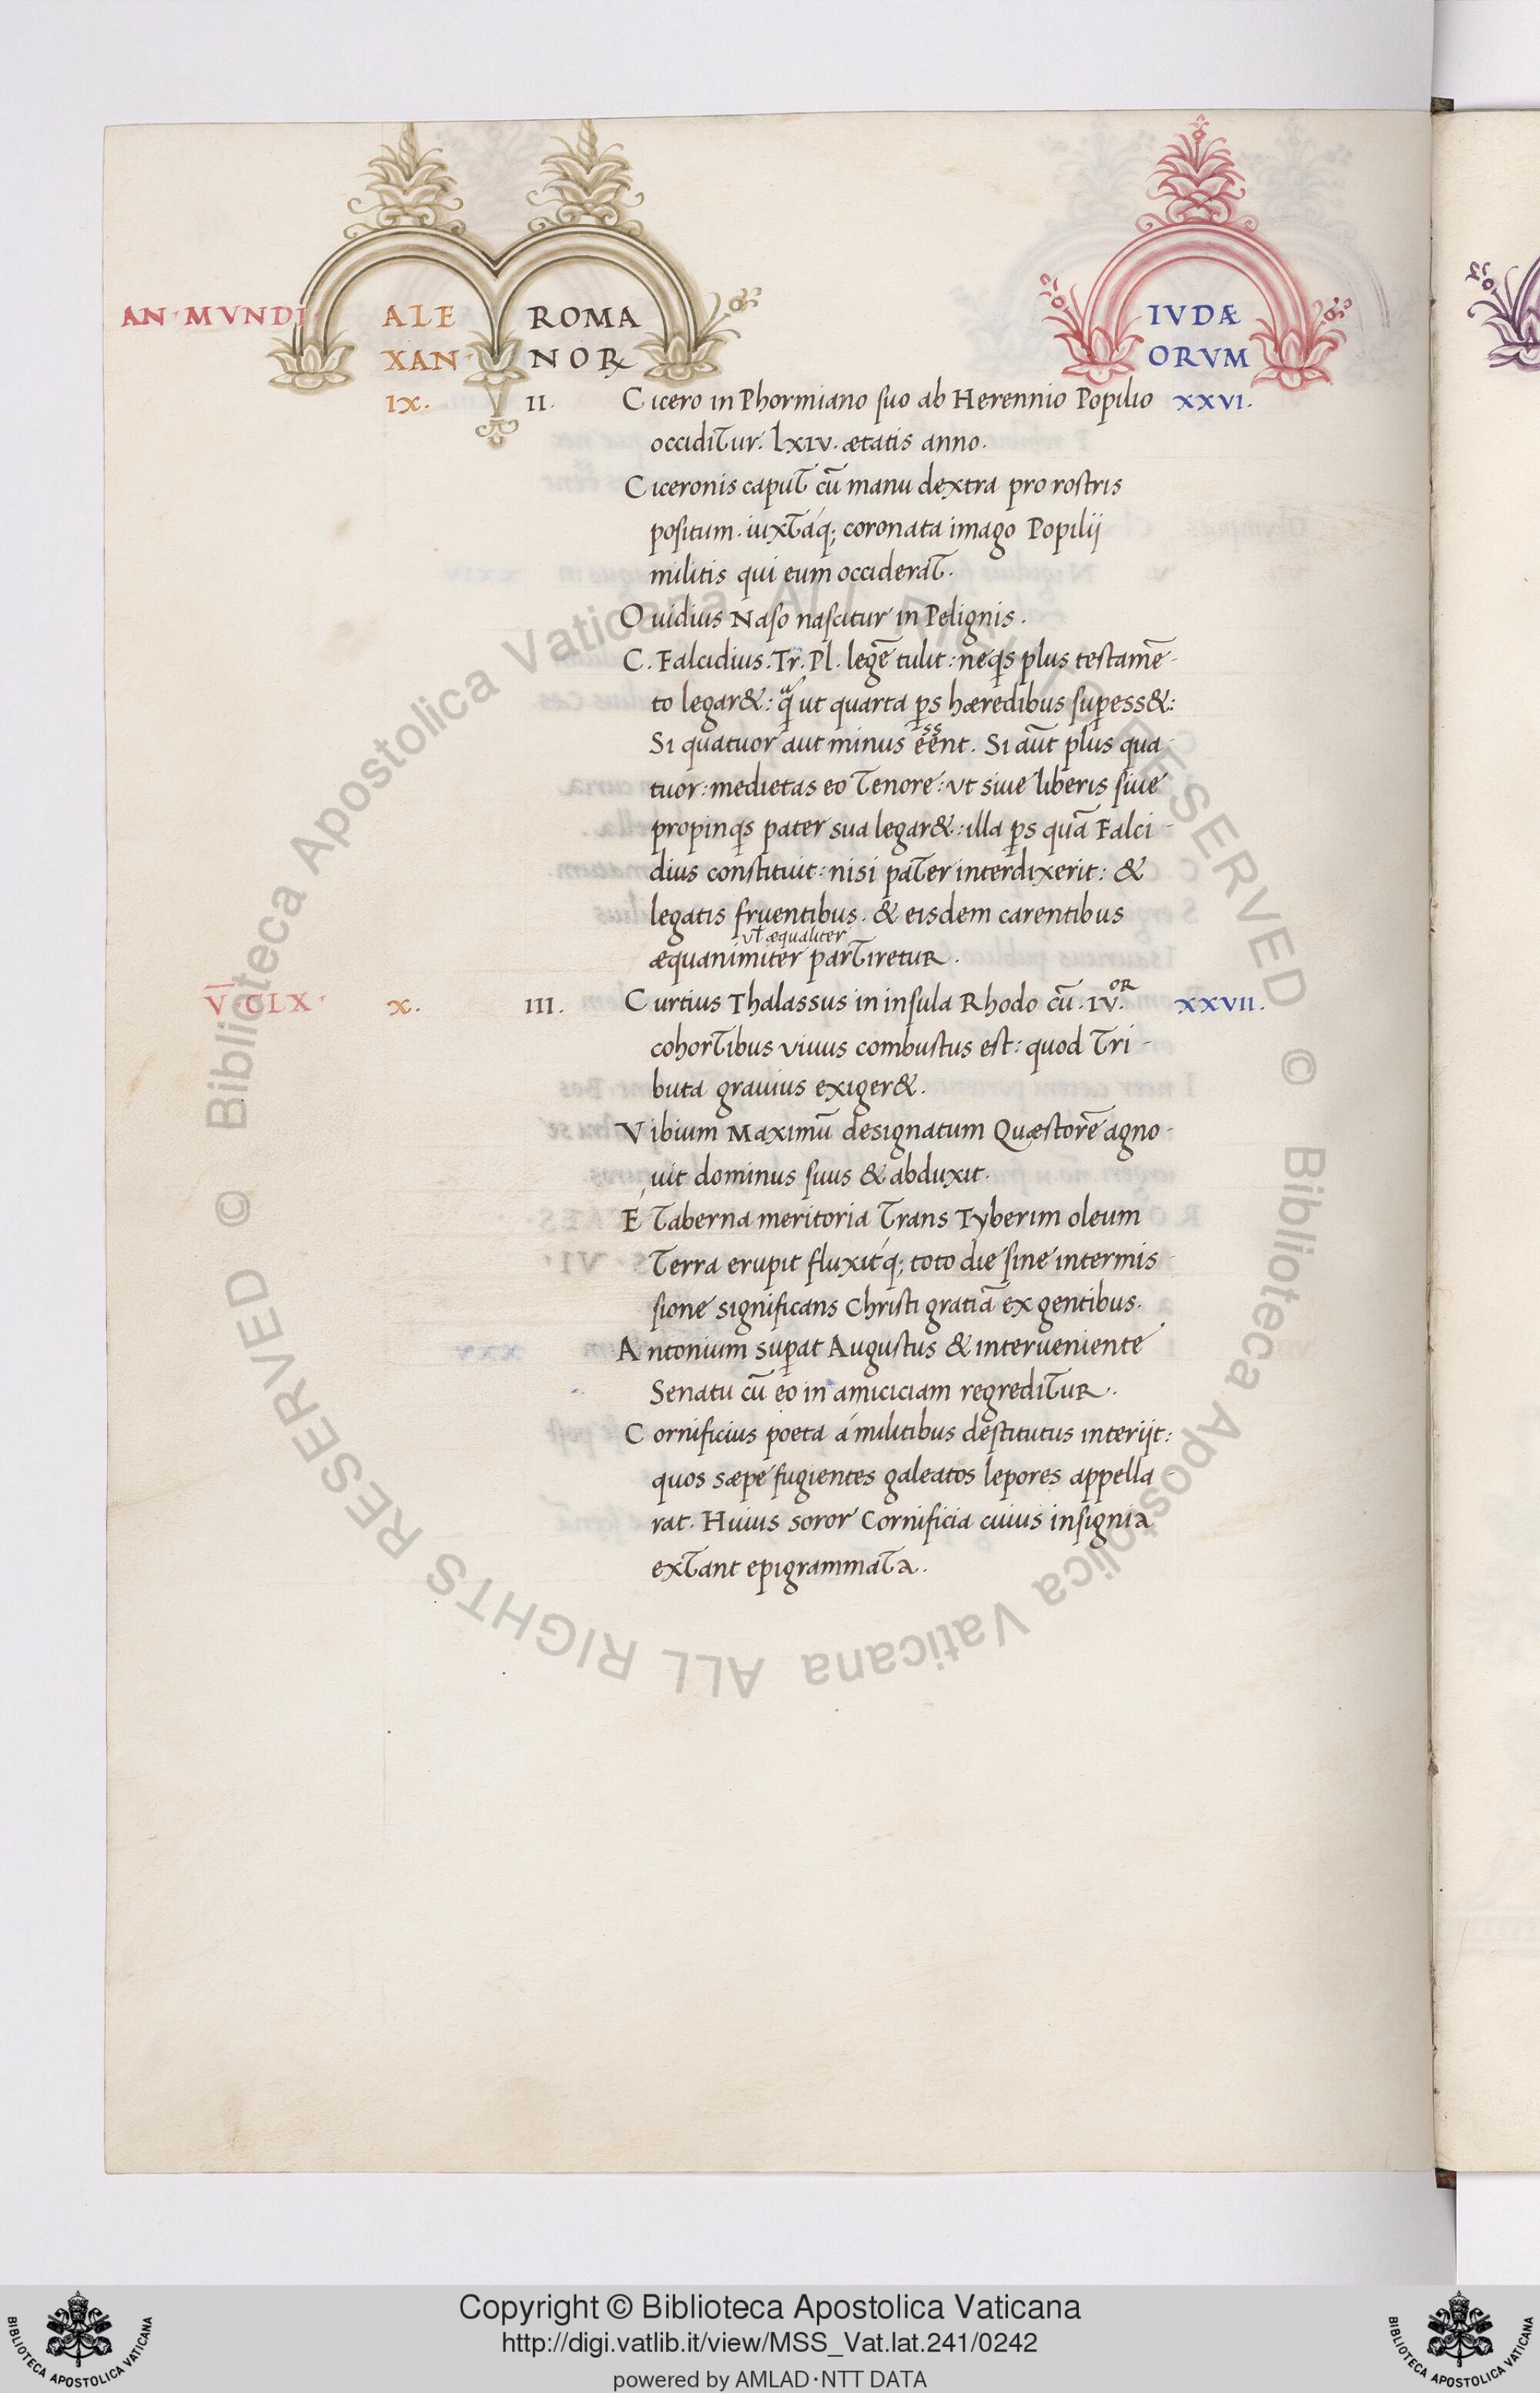 AN · MVNDI ALE ROMA IVDÆ
XAN · NOR ORVM
IX. II. Cicero in Phormiano suo ab Herennio Popilio XXVI.
occiditur. lxiv. ætatis anno.
Ciceronis caput cū manu dextra pro rostris
positum. iuxtáq; coronata imago Popilij
militis qui eum occiderat.
Ouidius Naso nascitur in Pelignis.
C. Falcidius. Tr. Pl. legē tulit: neqs plus testamē-
to legar&: ꝙ ut quarta ps hæredibus supess&:
Si quatuor aut minus eēnt. Si aūt plus qua-
tuor: medietas eo tenore: vt siue liberis siue
propinqs pater sua legar&: illa ps quā Falci-
dius constituit: nisi pater interdixerit: &
legatis fruentibus. & eisdem carentibus
vł æqualiter
æquanimiter partiretur.
V̅ · CLX · X. III. Curtius Thalassus in insula Rhodo cū. IV.OR XXVII.
cohortibus viuus combustus est: quod tri-
buta grauius exiger&.
Vibium Maximū designatum Quæstorē agno-
uit dominus suus & abduxit.
É taberna meritoria trans Tyberim oleum
terra erupit fluxitq́; toto die sine intermis-
sione significans Christi gratiā ex gentibus.
Antonium supat Augustus & interueniente
Senatu cū eo in amiciciam regreditur.
Cornificius poeta á militibus destitutus interijt:
quos sæpe fugientes galeatos lepores appella-
rat. Huius soror Cornificia cuius insignia
extant epigrammata.
© Biblioteca Apostolica Vaticana ALL RIGHTS RESERVED © Biblioteca Apostolica Vaticana ALL RIGHTS RESERVED
Copyright © Biblioteca Apostolica Vaticana
http://digi.vatlib.it/view/MSS_Vat.lat.241/0242
powered by AMLAD·NTT DATA
BIBLIOTECA APOSTOLICA VATICANA
BIBLIOTECA APOSTOLICA VATICANA